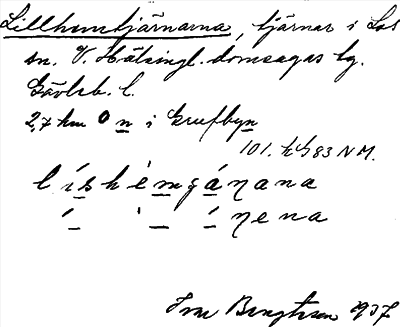 Lillhemtjärnarna, tjärnar i Los
sn. V. Hälsingl. domsagas tg.
Gävleb. l.
2,7 km O n i Grufbyn
101. h G 83 N M.
líshèmgáŋana
í ̀ í ŋena
Ivar Bengtsson 1937